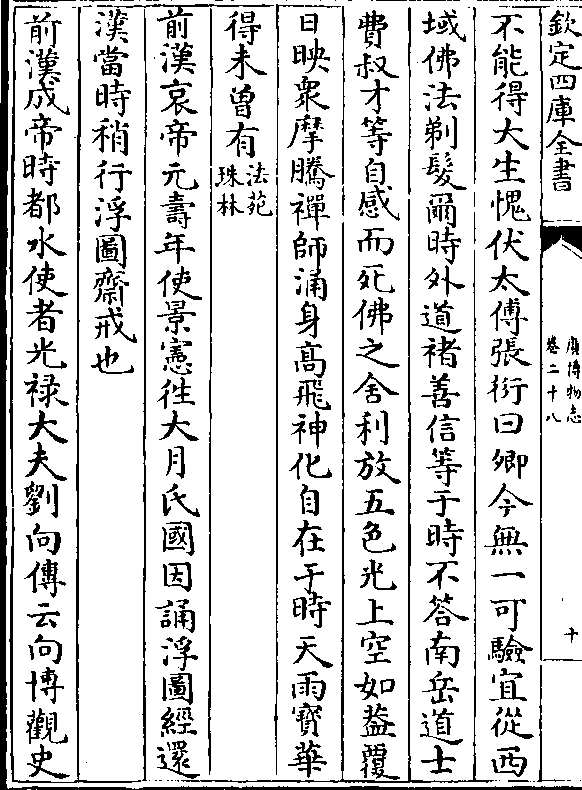 欽定四庫全書
廣博物志
卷二十八
十
不能得大生愧伏太傅張衍曰卿今無一可驗宜從西
域佛法剃髮爾時外道褚善信等于時不答南岳道士
費叔才等自感而死佛之舍利放五色光上空如葢覆
日映衆摩騰禪師涌身高飛神化自在于時天雨寶華
得未曾有法苑珠林
前漢哀帝元壽年使景憲徃大月氏國因誦浮圖經還
漢當時稍行浮圖齋戒也
前漢成帝時都水使者光禄大夫劉向傳云向博觀史